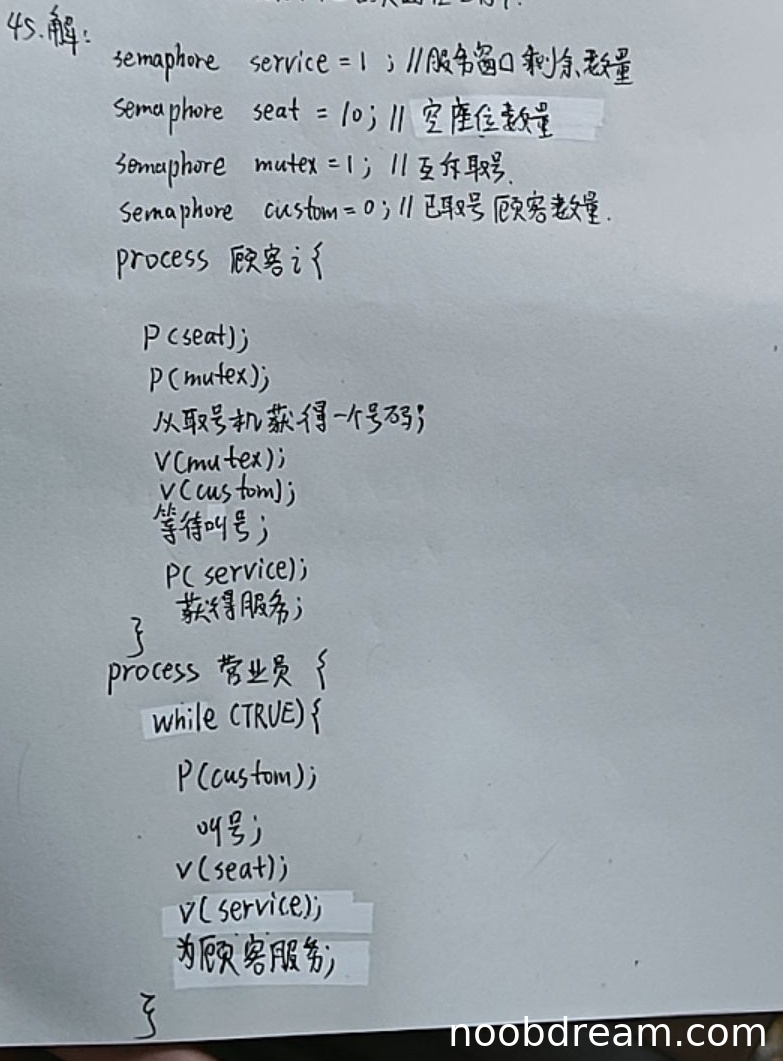 45.解:
semaphore service = 1 ; //服务窗口剩余数量
semaphore seat = 10; // 空座位数量
semaphore mutex = 1; // 互斥取号.
semaphore custom = 0; // 已取号顾客数量.
process 顾客i {
P(seat);
P(mutex);
从取号机获得一个号码;
V(mutex);
V(custom);
等待叫号;
P(service);
获得服务;
}
process 营业员 {
while (TRUE) {
P(custom);
叫号;
V(seat);
V(service);
为顾客服务;
}
noobdream.com